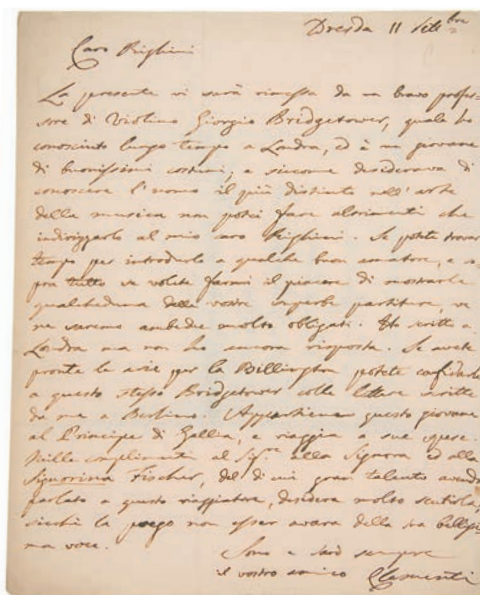 Dresda 11 Settbre
Caro Righini
La presente vi sarà rimessa da un bravo profes-
sore di Violino Giorgio Bridgetower, quale ho
conosciuto lungo tempo a Londra, ed è un giovane
di buonissimi costumi, e siccome desiderava di
conoscere l'uomo il più distinto nell'arte
della musica non potei fare altrimenti che
indirizzarlo al mio caro Righini. Se potete trovar
tempo per introdurlo a qualche buon amatore, e so-
pra tutto se volete farmi il piacere di mostrarle
qualcheduna delle vostre superbe partiture, ve
ne saremo ambedue molto obligati. Ho scritto a
Londra ma non ho ancora risposta. Se avete
pronte le arie per la Billington potete confidarle
a questo stesso Bridgetower colle lettere scritte
da me a Berlino. Appartiene questo giovane
al Principe di Gallia, e viaggia a sue spese.
Mille complimenti al Sigre alla Signora ed alla
Signorina Fischer, del di cui gran talento avendo
parlato a questo viaggiatore, desidera molto sentirla,
sicchè la prego non esser avara della sua bellissi-
ma voce.
Sono e sarò sempre
il vostro amico Clementi